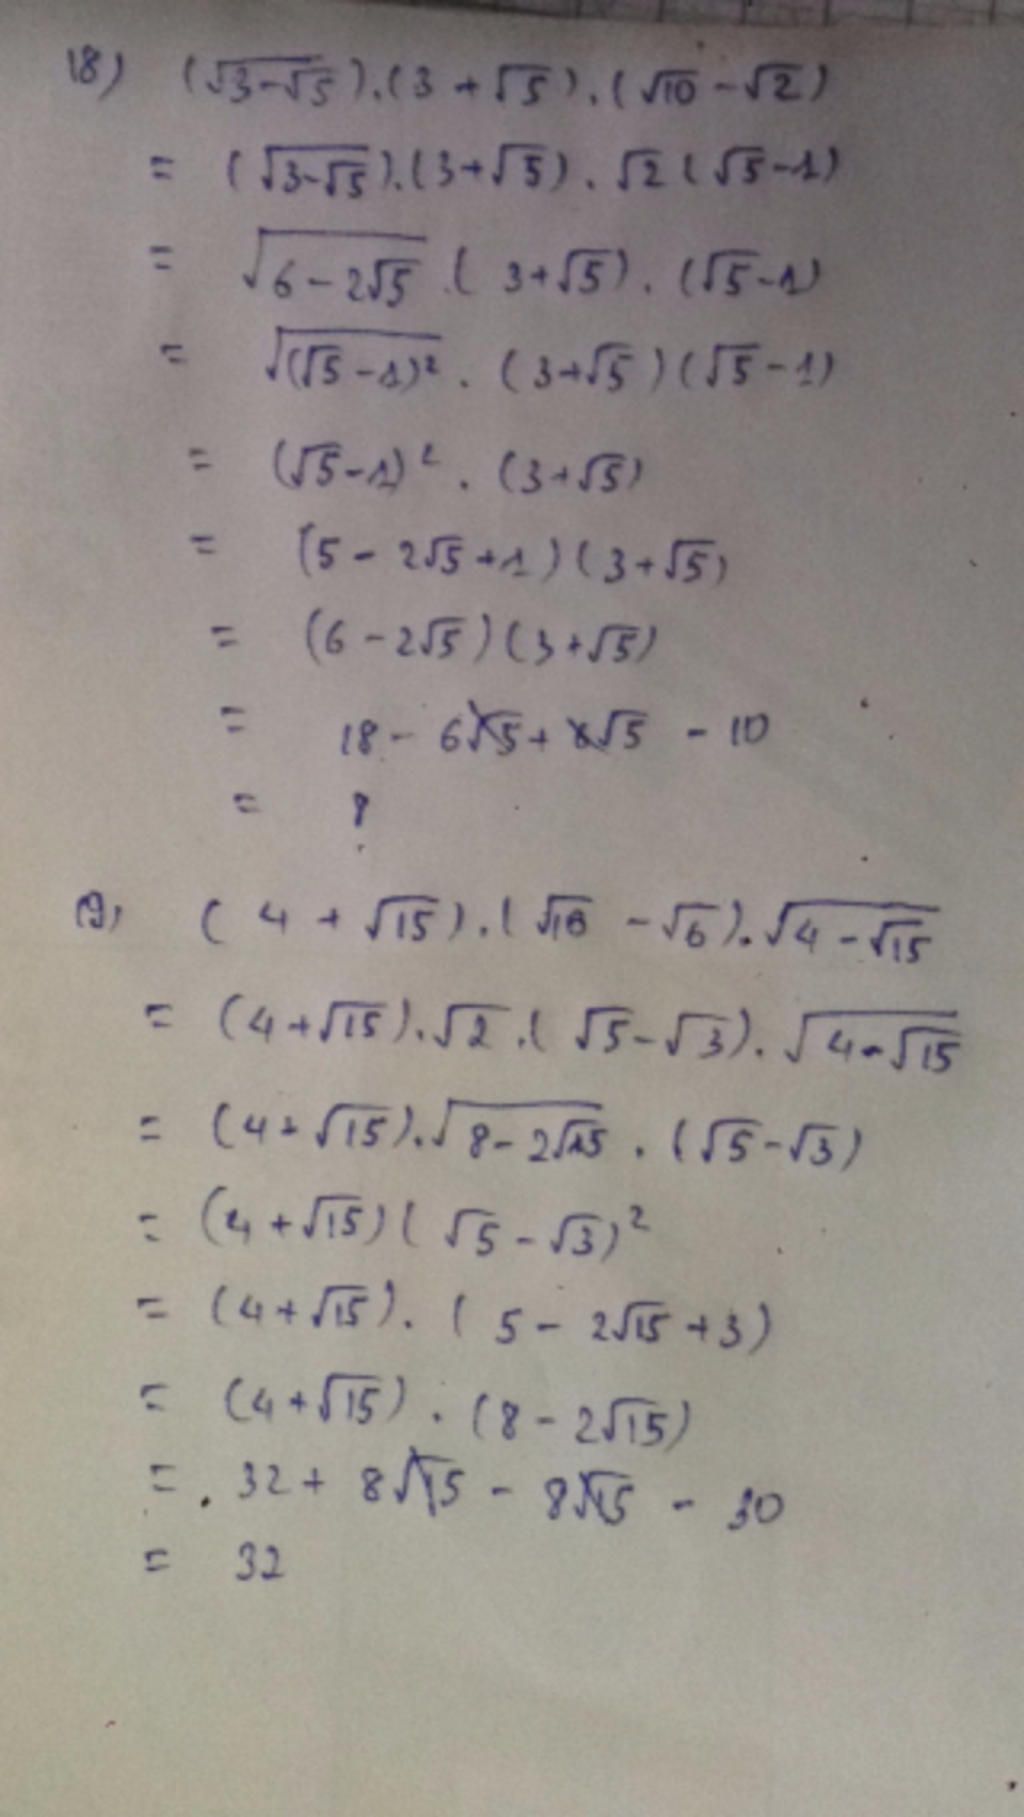 18) (√(3-√5)).(3+√5).(√10-√2)
= (√(3-√5)).(3+√5).√2(√5-1)
= √(6-2√5).(3+√5).(√5-1)
= √((√5-1)²).(3+√5)(√5-1)
= (√5-1)².(3+√5)
= (5-2√5+1)(3+√5)
= (6-2√5)(3+√5)
= 18-6√5+6√5-10
= 8
19) (4+√15).(√10-√6).√(4-√15)
= (4+√15).√2.(√5-√3).√(4-√15)
= (4+√15).√(8-2√15).(√5-√3)
= (4+√15)(√5-√3)²
= (4+√15).(5-2√15+3)
= (4+√15).(8-2√15)
= 32+8√15-8√15-30
= 32